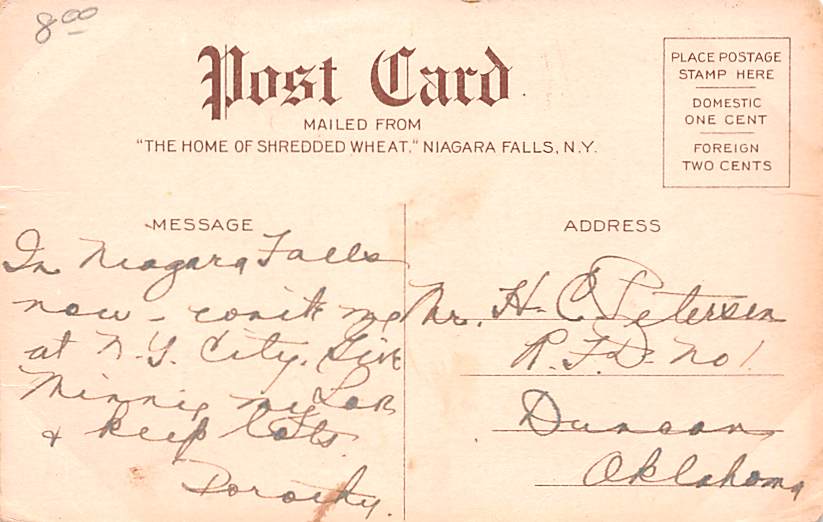 8 00
Post Card
MAILED FROM
"THE HOME OF SHREDDED WHEAT," NIAGARA FALLS, N.Y.
PLACE POSTAGE
STAMP HERE
DOMESTIC
ONE CENT
FOREIGN
TWO CENTS
MESSAGE
In Niagara Falls
now - me
at N.Y. City. Give
Minnie my
& keep lots
Dorothy.
ADDRESS
Mr. H. C. Petersen
R.F.D. No 1.
Duncan
Oklahoma